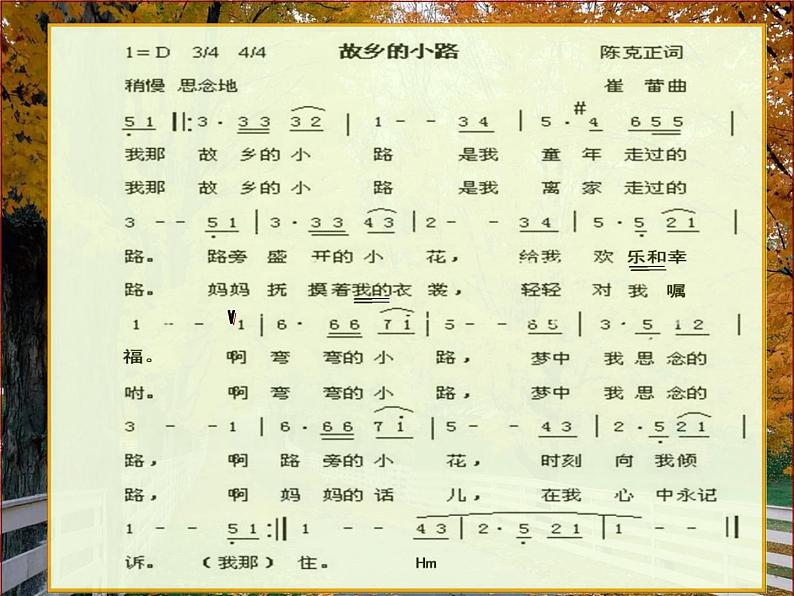 1＝D 3/4 4/4 故乡的小路 陈克正词
稍慢 思念地 崔 蕾曲
5 1 ‖: 3 · 3 3 3 2 | 1 - - 3 4 | 5 · #4 6 5 5 |
我那 故 乡的 小 路 是我 童 年 走过的
我那 故 乡的 小 路 是我 离 家 走过的
3 - - 5 1 | 3 · 3 3 4 3 | 2 - - 3 4 | 5 · 5 2 1 |
路。 路旁 盛 开的 小 花， 给我 欢 乐和幸
路。 妈妈 抚 摸着我的衣 裳， 轻轻 对 我 嘱
1 - - V 1 | 6 · 6 6 7 i | 5 - - 6 5 | 3 · 5 1 2 |
福。 啊 弯 弯的 小 路， 梦中 我 思 念的
咐。 啊 弯 弯的 小 路， 梦中 我 思 念的
3 - - 1 | 6 · 6 6 7 i | 5 - - 4 3 | 2 · 5 2 1 |
路， 啊 路 旁的 小 花， 时刻 向 我倾
路， 啊 妈 妈的 话 儿， 在我 心 中永记
1 - - 5 1 :‖ 1 - - 4 3 | 2 · 5 2 1 | 1 - - ‖
诉。 （我那） 住。 Hm